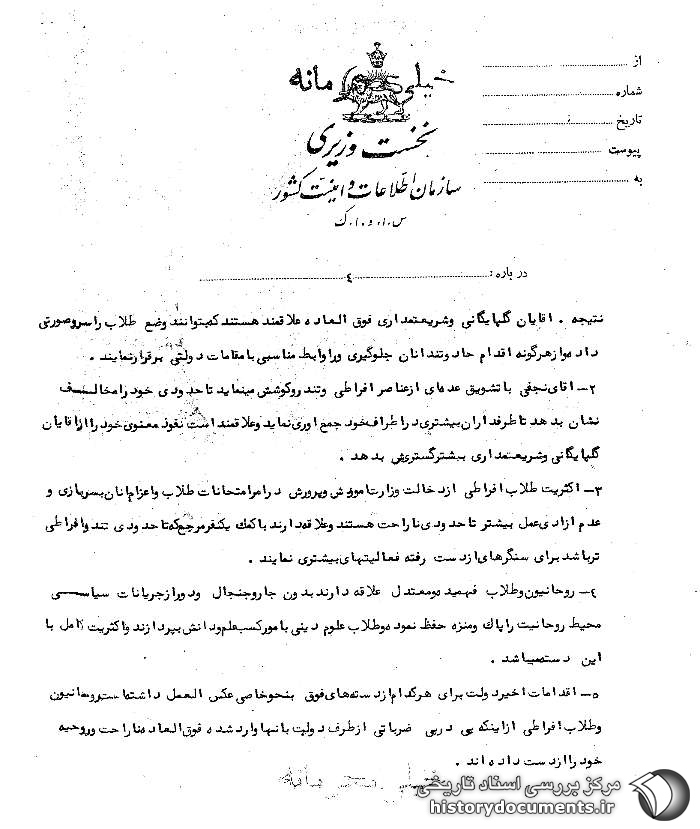 خیلی محرمانه
از
شماره
تاریخ
پیوست
به
نخست وزیری
سازمان اطلاعات و امنیت کشور
س.ا.و.ا.ک
در باره : ٤
نتیجه . اقایان گلپایگانی وشریعتمداری فوق العاده علاقمند هستند که بتوانند وضع طلاب را سروصورتی
داده و از هرگونه اقدام حاد و تند انان جلوگیری وروابط مناسبی با مقامات دولتی برقرار نمایند .
۲- اقای نجفی با تشویق عده ای از عناصر افراطی وتند رو کوشش مینماید تا حدودی خود را مخالف
نشان بدهد تا طرفداران بیشتری در اطراف خود جمع اوری نماید و علاقمند است نفوذ معنوی خود را از اقایان
گلپایگانی وشریعتمداری بیشتر گسترش بدهد .
۳- اکثریت طلاب افراطی از دخالت وزارت اموزش وپرورش در امر امتحانات طلاب واعزام انان بسربازی و
عدم ازادی عمل بیشتر تا حدودی ناراحت هستند وعلاقه دارند با کمک یکنفر مرجع که تا حدودی تند وافراطی
تر باشد برای سنگرهای از دست رفته فعالیتهای بیشتری نمایند .
٤- روحانیون وطلاب فهمیده ومعتدل علاقه دارند بدون جاروجنجال ودور از جریانات سیاسی
محیط روحانیت را پاک ومنزه حفظ نموده وطلاب علوم دینی بامور کسب علم ودانش بپردازند واکثریت کامل با
این دسته میباشد .
٥- اقدامات اخیر دولت برای هرکدام از دسته های فوق بنحو خاصی عکس العمل داشته است روحانیون
وطلاب افراطی از اینکه پی در پی ضرباتی از طرف دولت بانها وارد شده فوق العاده ناراحت وروحیه
خود را از دست داده اند .
خیلی محرمانه
مرکز بررسی اسناد تاریخی
historydocuments.ir